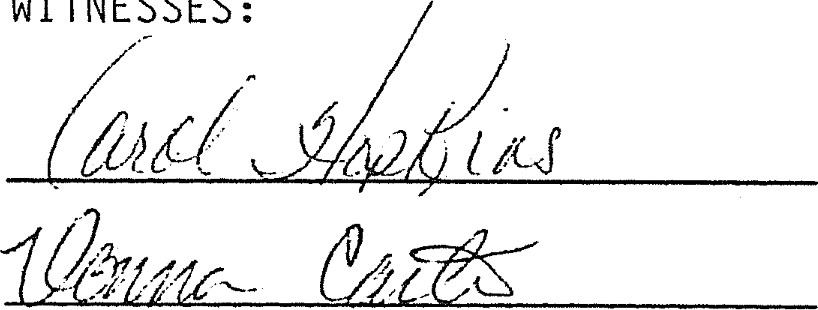 WITNESSES:
Carol Hopkins
Donna Carter